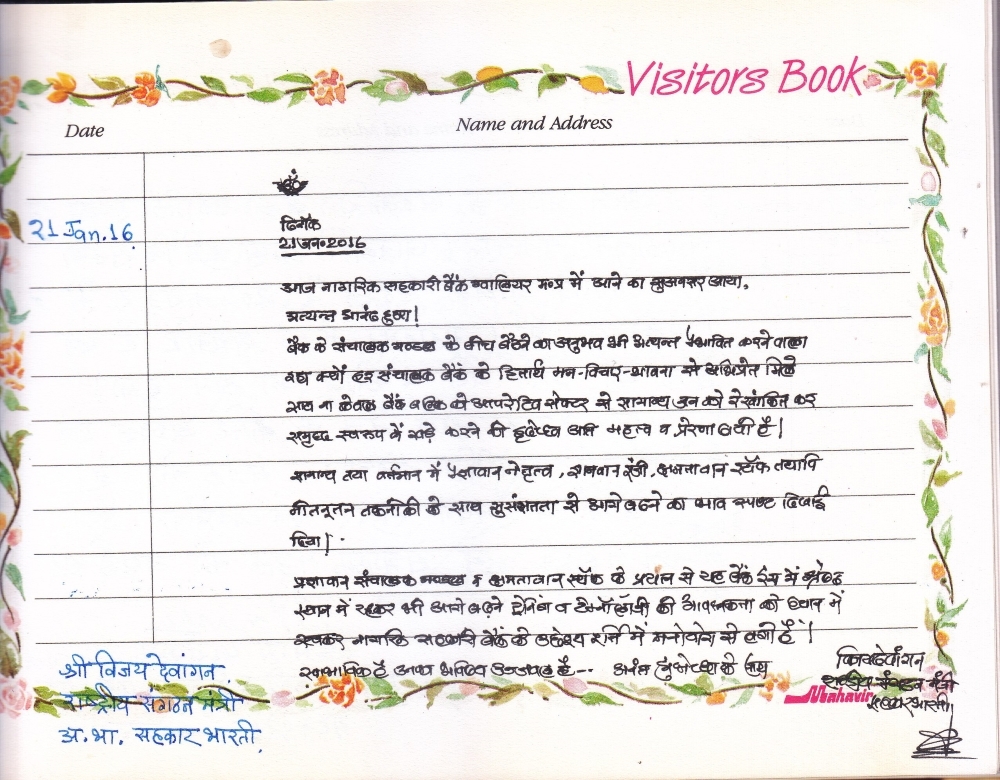 Visitors Book
Date
Name and Address
ॐ
21 Jan. 16
दिनाँक
21 जन. 2016
आज नागरिक सहकारी बैंक ग्वालियर म.प्र में आने का सुअवसर आया,
अत्यन्त आनंद हुआ!
बैंक के संचालक मण्डल के बीच बैठने का अनुभव भी अत्यन्त प्रभावित करने वाला
रहा क्यों हर संचालक बैंक के हितार्थ मन-विचार-भावना से अभिप्रेत मिले
साथ ना केवल बैंक बल्कि को आपरेटिव सेक्टर से सामान्य जन को रेखांकित कर
समृद्ध स्वरूप में खड़े करने की महत्व व प्रेरणा है!
तथा वर्तमान में नेतृत्व, क्षमतावान स्टॉफ तथापि
नीतनूतन तकनीकी के साथ से आगे बढने का भाव स्पष्ट दिखाई
दिया!
संचालक मण्डल व क्षमतावान स्टॉफ के प्रयास से यह बैंक देश में श्रेष्ठ
स्थान में रहकर भी आगे बढ़ने ट्रेनिंग व टेक्नॉलॉजी की आवश्यकता को ध्यान में
रखकर नागरिक सहकारी बैंक के उद्देश्य में मनोयोग से लगी है!
स्वाभाविक है आपका भविष्य उज्जवल है--- अनंत शुभेच्छा के साथ
श्री विजय देवांगन,
राष्ट्रीय संगठन मंत्री
अ. भा. सहकार भारती,
विजय देवांगन
राष्ट्रीय संगठन मंत्री
सहकार भारती
Mahavir